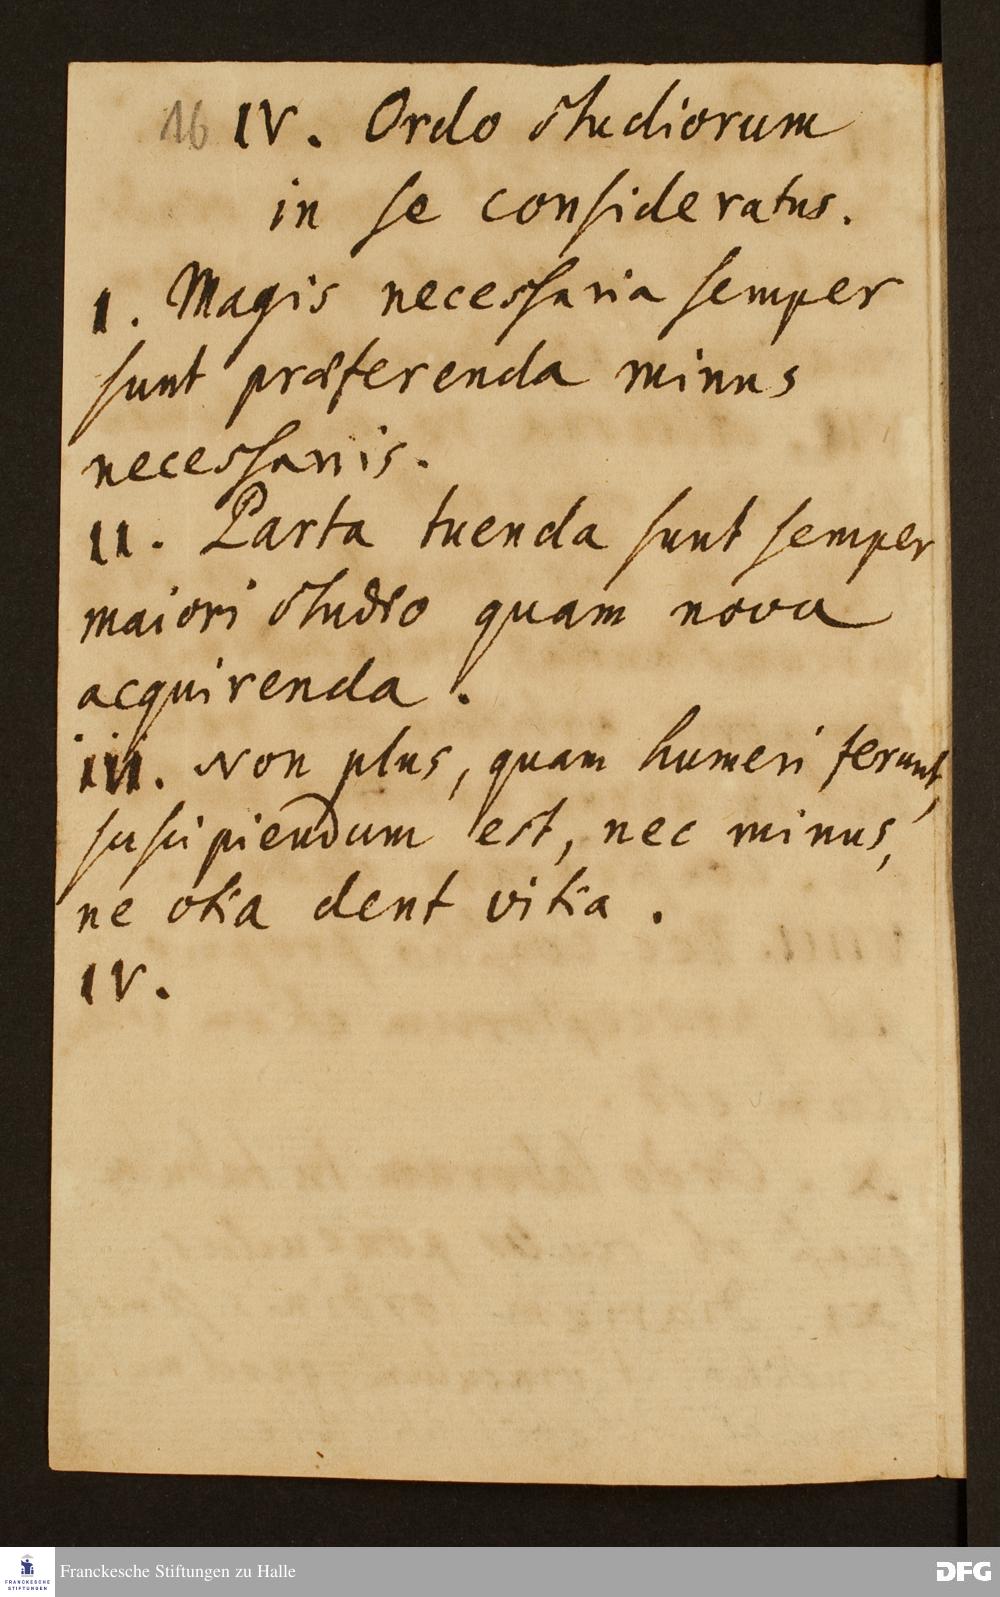 16 IV. Ordo studiorum
in se consideratus.
I. Magis necessaria semper
sunt præferenda minus
necessariis.
II. Parta tuenda sunt semper
maiori studio quam nova
acquirenda.
III. Non plus, quam humeri ferunt,
suscipiendum est, nec minus,
ne otia dent vitia.
IV.
FRANCKESCHE
STIFTUNGEN
Franckesche Stiftungen zu Halle
DFG